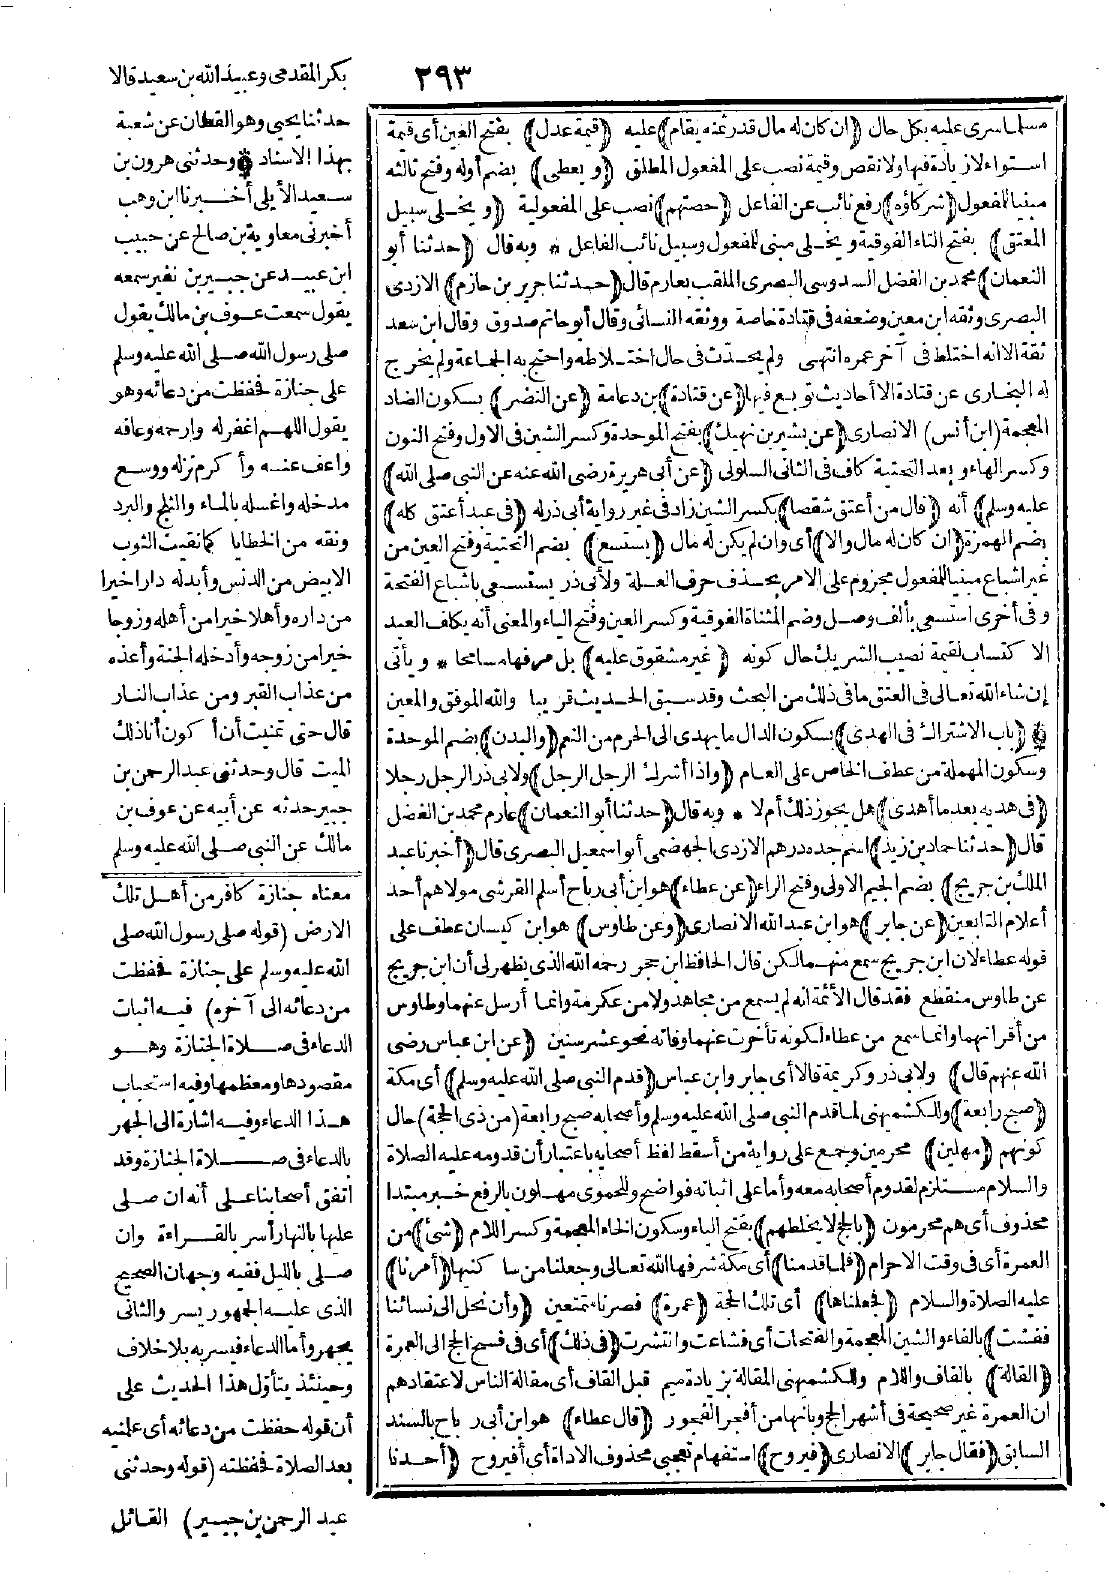 ٢٩٣
مسلماسرى عليه بكل حال (ان كان له مال قدر عنه يقام) عليه (قيمة عدل) بفتح العين أى قيمة
استواء لازيادة فيها ولا نقص وقيمة نصب على المفعول المطلق (ويعطى) بضم أوله وفتح ثالثه
مبنيا للمفعول (شركاؤه) رفع نائب عن الفاعل (حصتهم) نصب على المفعولية (ويخلى سبيل
المعتق) بفتح التاء الفوقية ويخلى مبنى للمفعول وسبيل نائب الفاعل * وبه قال (حدثنا أبو
النعمان) محمد بن الفضل السدوسى البصرى الملقب بعارم قال (حدثنا جرير بن حازم) الازدى
البصرى وثقه ابن معين وضعفه فى قتادة خاصة ووثقه النسائى وقال أبو حاتم صدوق وقال ابن سعد
ثقة الا انه اختلط فى آخر عمره انتهى ولم يحدث فى حال اختلاطه واحتج به الجماعة ولم يخرج
له البخارى عن قتادة الا أحاديث توبع فيها (عن قتادة) بن دعامة (عن النضر) بسكون الضاد
المعجمة (ابن أنس) الانصارى (عن بشير بن نهيك) بفتح الموحدة وكسر الشين فى الاول وفتح النون
وكسر الهاء وبعد التحتية كاف فى الثانى السلولى (عن أبى هريرة رضى الله عنه عن النبى صلى الله)
عليه وسلم) أنه (قال من أعتق شقصا) بكسر الشين زاد فى غير رواية أبى ذر له (فى عبد أعتق كله)
بضم الهمزة (ان كان له مال والا) أى وان لم يكن له مال (يستسع) بضم التحتية وفتح العين من
غير اشباع مبنيا للمفعول مجزوم على الامر بحذف حرف العلة ولأبى ذر يستسعى باشباع الفتحة
وفى أخرى استسعى بألف وصل وضم المثناة الفوقية وكسر العين وفتح الياء والمعنى أنه يكلف العبد
الاكتساب لقيمة نصيب الشريك حال كونه (غير مشقوق عليه) بل مرفها مسامحا * ويأتى
إن شاء الله تعالى فى العتق ما فى ذلك من البحث وقد سبق الحديث قريبا والله الموفق والمعين
(باب الاشتراك فى الهدى) بسكون الدال ما يهدى الى الحرم من النعم (والبدن) بضم الموحدة
وسكون المهملة من عطف الخاص على العام (واذا أشرك الرجل الرجل) ولابى ذر الرجل رجلا
(فى هديه بعد ما أهدى) هل يجوز ذلك أم لا * وبه قال (حدثنا أبو النعمان) عارم محمد بن الفضل
قال (حدثنا حماد بن زيد) اسم جده درهم الازدى الجهضمى أبو اسمعيل البصرى قال (أخبرنا عبد
الملك بن جريج) بضم الجيم الاولى وفتح الراء (عن عطاء) هو ابن أبى رباح أسلم القرشى مولاهم أحد
أعلام التابعين (عن جابر) هو ابن عبد الله الانصارى (وعن طاوس) هو ابن كيسان عطف على
قوله عطاء لان ابن جريج سمع منهما لكن قال الحافظ ابن حجر رحمه الله الذى يظهر لى أن ابن جريج
عن طاوس منقطع فقد قال الأئمة انه لم يسمع من مجاهد ولا من عكرمة وانما أرسل عنهما وطاوس
من أقرانهما وانما سمع من عطاء لكونه تأخرت عنهما وفاته نحو عشر سنين (عن ابن عباس رضى
الله عنهم قال) ولابى ذر وكريمة قالا أى جابر وابن عباس (قدم النبى صلى الله عليه وسلم) أى مكة
(صبح رابعة) وللكشميهنى لما قدم النبى صلى الله عليه وسلم وأصحابه صبح رابعة (من ذى الحجة) حال
كونهم (مهلين) محرمين وجمع على رواية من أسقط لفظ أصحابه باعتبار أن قدومه عليه الصلاة
والسلام مستلزم لقدوم أصحابه معه وأما على اثباته فواضح وللحموى مهلون بالرفع خبر مبتدا
محذوف أى هم محرمون (بالحج لا يخلطهم) بفتح الياء وسكون الخاء المعجمة وكسر اللام (شئ) من
العمرة أى فى وقت الاحرام (فلما قدمنا) أى مكة شرفها الله تعالى وجعلنا من ساكنيها (أمرنا)
عليه الصلاة والسلام (فجعلناها) أى تلك الحجة (عمرة) فصرنا متمتعين (وأن نحل الى نسائنا
ففشت) بالفاء والشين المعجمة والفتحات أى فشاعت وانتشرت (فى ذلك) أى فى فسخ الحج الى العمرة
(القالة) بالقاف واللام وللكشميهنى المقالة بزيادة ميم قبل القاف أى مقالة الناس لاعتقادهم
ان العمرة غير صحيحة فى أشهر الحج وبأنها من أفجر الفجور (قال عطاء) هو ابن أبى رباح بالسند
السابق (فقال جابر) الانصارى (فيروح) استفهام تعجبى محذوف الاداة أى أفيروح (أحدنا
بكر المقدمى وعبيد الله بن سعيد قالا
حدثنا يحيى وهو القطان عن شعبة
بهذا الاسناد * وحدثنى هرون بن
سعيد الأيلى أخبرنا ابن وهب
أخبرنى معاوية بن صالح عن حبيب
ابن عبيد عن جبير بن نفير سمعه
يقول سمعت عوف بن مالك يقول
صلى رسول الله صلى الله عليه وسلم
على جنازة فحفظت من دعائه وهو
يقول اللهم اغفر له وارحمه وعافه
واعف عنه وأكرم نزله ووسع
مدخله واغسله بالماء والثلج والبرد
ونقه من الخطايا كما نقيت الثوب
الابيض من الدنس وأبدله دارا خيرا
من داره وأهلا خيرا من أهله وزوجا
خيرا من زوجه وأدخله الجنة وأعذه
من عذاب القبر ومن عذاب النار
قال حتى تمنيت أن أكون أنا ذلك
الميت قال وحدثنى عبد الرحمن بن
جبير حدثه عن أبيه عن عوف بن
مالك عن النبى صلى الله عليه وسلم
معناه جنازة كافر من أهل تلك
الارض (قوله صلى رسول الله صلى
الله عليه وسلم على جنازة فحفظت
من دعائه الى آخره) فيه اثبات
الدعاء فى صلاة الجنازة وهو
مقصودها ومعظمها وفيه استحباب
هذا الدعاء وفيه اشارة الى الجهر
بالدعاء فى صلاة الجنازة وقد
اتفق أصحابنا على أنه ان صلى
عليها بالنهار أسر بالقراءة وان
صلى بالليل ففيه وجهان الصحيح
الذى عليه الجمهور يسر والثانى
يجهر وأما الدعاء فيسر به بلا خلاف
وحينئذ يتأول هذا الحديث على
أن قوله حفظت من دعائه أى علمنيه
بعد الصلاة فحفظته (قوله وحدثنى
عبد الرحمن بن جبير) القائل